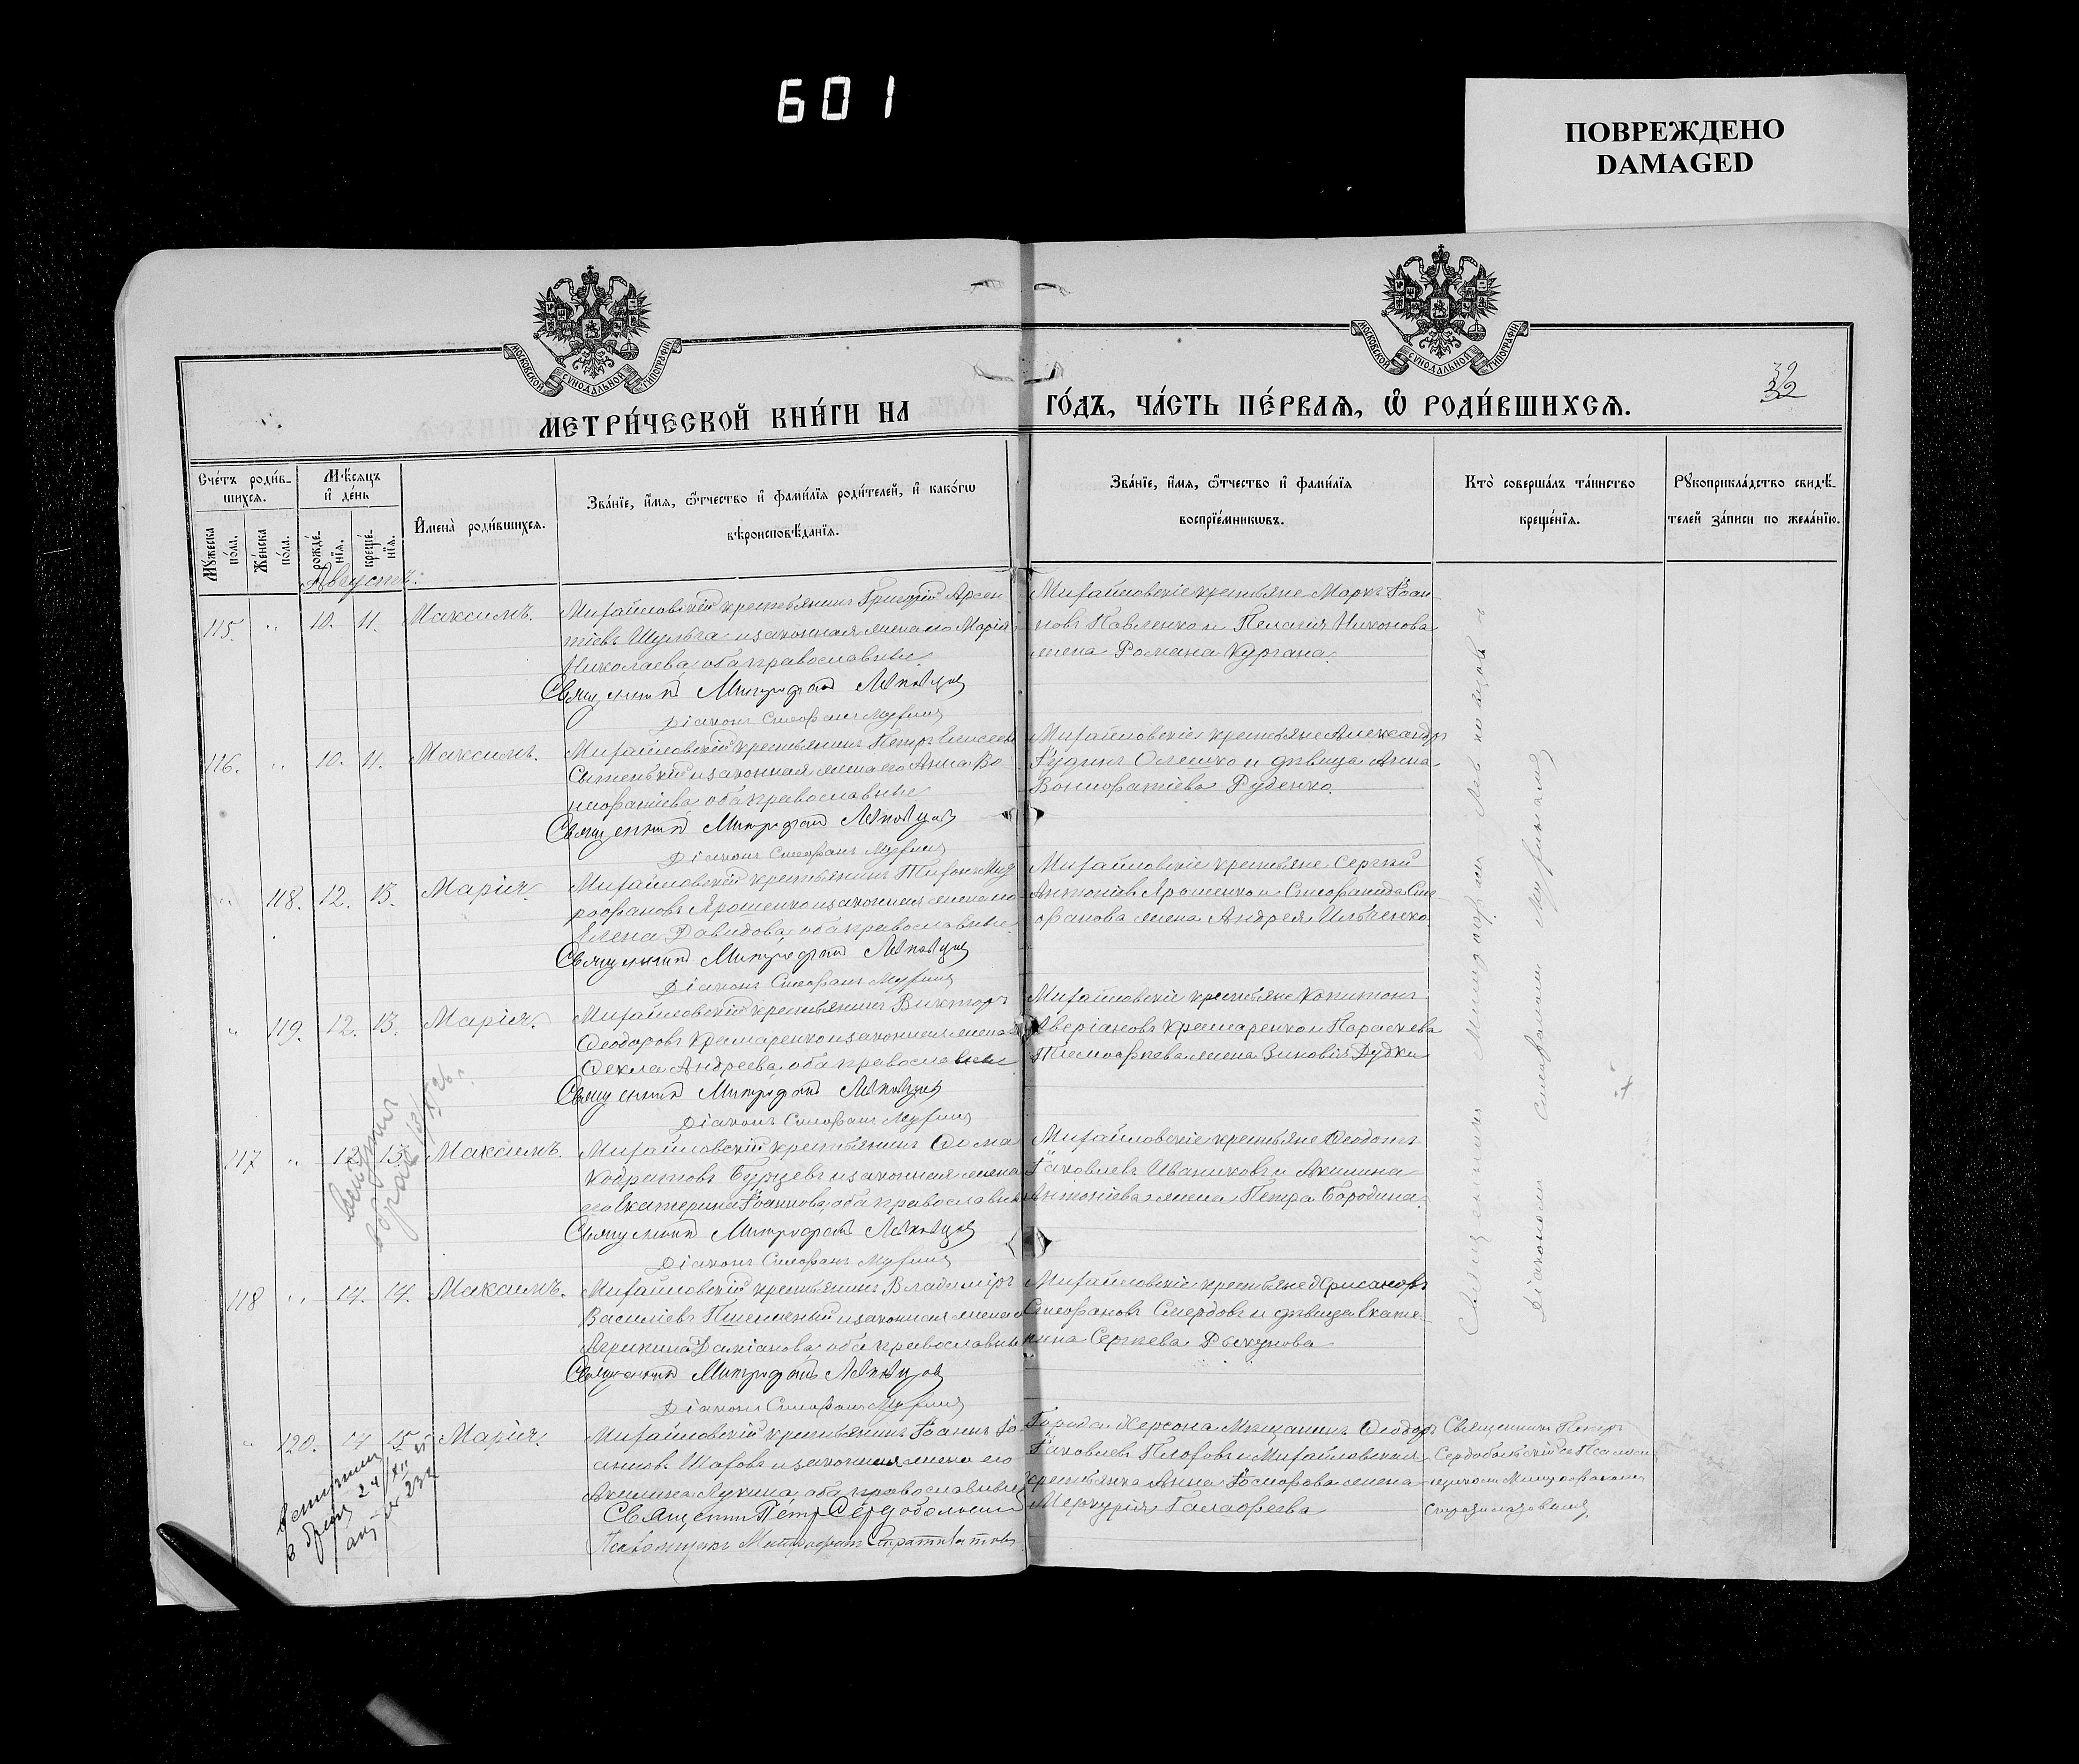 601
ПОВРЕЖДЕНО
DAMAGED
МОСКОВСКОЙ СѴНОДАЛЬНОЙ ТИПОГРАФІИ
МОСКОВСКОЙ СѴНОДАЛЬНОЙ ТИПОГРАФІИ
39
32
МЕТРИ́ЧЕСКОЙ КНИ́ГИ НА
ГО́ДЪ, ЧА́СТЬ ПЕ́РВАѦ, Ѡ҆ РОДИ́ВШИХСѦ.
Сче́тъ роди́в-
шихсѧ.
Мꙋ́жеска
по́ла.
Же́нска
по́ла.
Мѣ́сѧцъ
и҆ де́нь
рожде́-
нїѧ.
креще́-
нїѧ.
И҆мена̀ роди́вшихсѧ.
Зва́нїе, и҆́мѧ, ѻ҆́тчество и҆ фами́лїѧ роди́телей, и҆ како́гѡ
вѣроисповѣ́данїѧ.
Зва́нїе, и҆́мѧ, ѻ҆́тчество и҆ фами́лїѧ
воспрїе́мникѡвъ.
Кто̀ соверша́лъ та́инство
креще́нїѧ.
Рꙋкоприкла́дство свидѣ́-
телей за́писи по жела́нїю.
Августъ.
115. " 10. 11. Максимъ.
Михайловскій крестьянинъ Григорій Арсен
тіевъ Шульга и законная жена его Марія
Николаева, оба православные.
Священникъ Митрофанъ
Діаконъ Стефанъ
Михайловскіе крестьяне Маркъ Іоан
новъ Павленко и Пелагія Никонова
жена Романа Кургана.
116. " 10. 11. Максимъ.
Михайловскій крестьянинъ Петръ Елисеевъ
и законная жена его Анна Во
нифатіева, оба православные
Священникъ Митрофанъ
Діаконъ Стефанъ
Михайловскіе крестьяне Александръ
Олешко и дѣвица Анна
Вонифатіева Руденко.
" 118. 12. 13. Марія.
Михайловскій крестьянинъ Тихонъ Мит
рофановъ Ярошенко и законная жена его
Елена Давидова, оба православные.
Священникъ Митрофанъ
Діаконъ Стефанъ
Михайловскіе крестьяне Сергій
Антоніевъ Ярошенко и Стефанида Сте
фанова жена Андрея Ильченко
" 119. 12. 13. Марія.
Михайловскій крестьянинъ Викторъ
Ѳеодоровъ Крамаренко и законная жена его
Ѳекла Андреева, оба православные
Священникъ Митрофанъ
Діаконъ Стефанъ
Михайловскіе крестьяне Капитонъ
Аверіановъ Крамаренко и Параскева
Тимоѳеева жена Зиновія Дудки
117 " 12. 13. Максимъ.
Михайловскій крестьянинъ Ѳома
Кодратовъ Бурцевъ и законная жена
его Екатерина Іоаннова, оба православные
Священникъ Митрофанъ
Діаконъ Стефанъ
Михайловскіе крестьяне Ѳеодотъ
Іаковлевъ Иваниковъ и Акилина
Антоніева жена Петра Бородина.
118 " 14. 14. Максимъ.
Михайловскій крестьянинъ Владиміръ
Василіевъ Пшеничный и законная жена его
Агрипина Даміанова, оба православные
Священникъ Митрофанъ
Діаконъ Стефанъ
Михайловскіе крестьяне Хрисанфъ
Стефановъ Смердовъ и дѣвица Екате-
рина Сергіева Рыкунова
" 120. 14 15 Марія.
Михайловскій крестьянинъ Іоаннъ Іо
анновъ Шаховъ и законная жена его
Акилина Лукина, оба православные
Священникъ Петръ Сердобольскій
Псаломщикъ Митрофанъ
Города Херсона Мѣщанинъ Ѳеодоръ
Іаковлевъ и Михайловская
крестьянка Анна Іосифова жена
Меркурія
Священникъ Петръ
Сердобольскій съ Псалом
щикомъ Митрофаномъ
Священникъ Митрофанъ
Діакономъ Стефаномъ